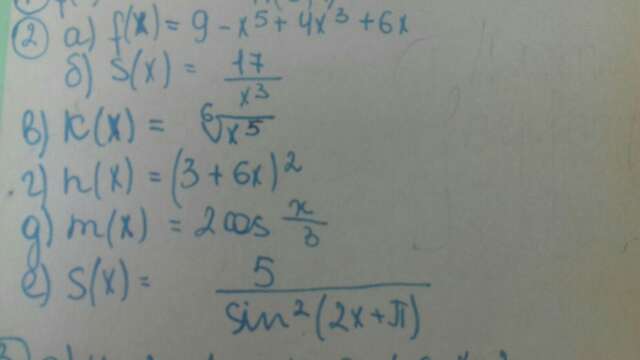 ② а) f(x) = 9 - x⁵ + 4x³ + 6x
б) S(x) = 17/x³
в) K(x) = ⁶√x⁵
г) h(x) = (3 + 6x)²
д) m(x) = 2cos x/3
е) S(x) = 5/sin²(2x+π)